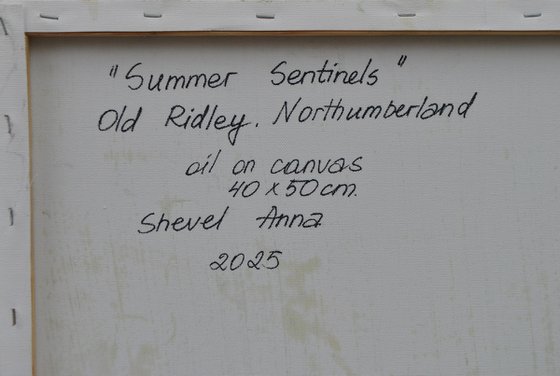 "Summer Sentinels"
Old Ridley. Northumberland
oil on canvas
40 x 50 cm.
Shevel Anna.
2025